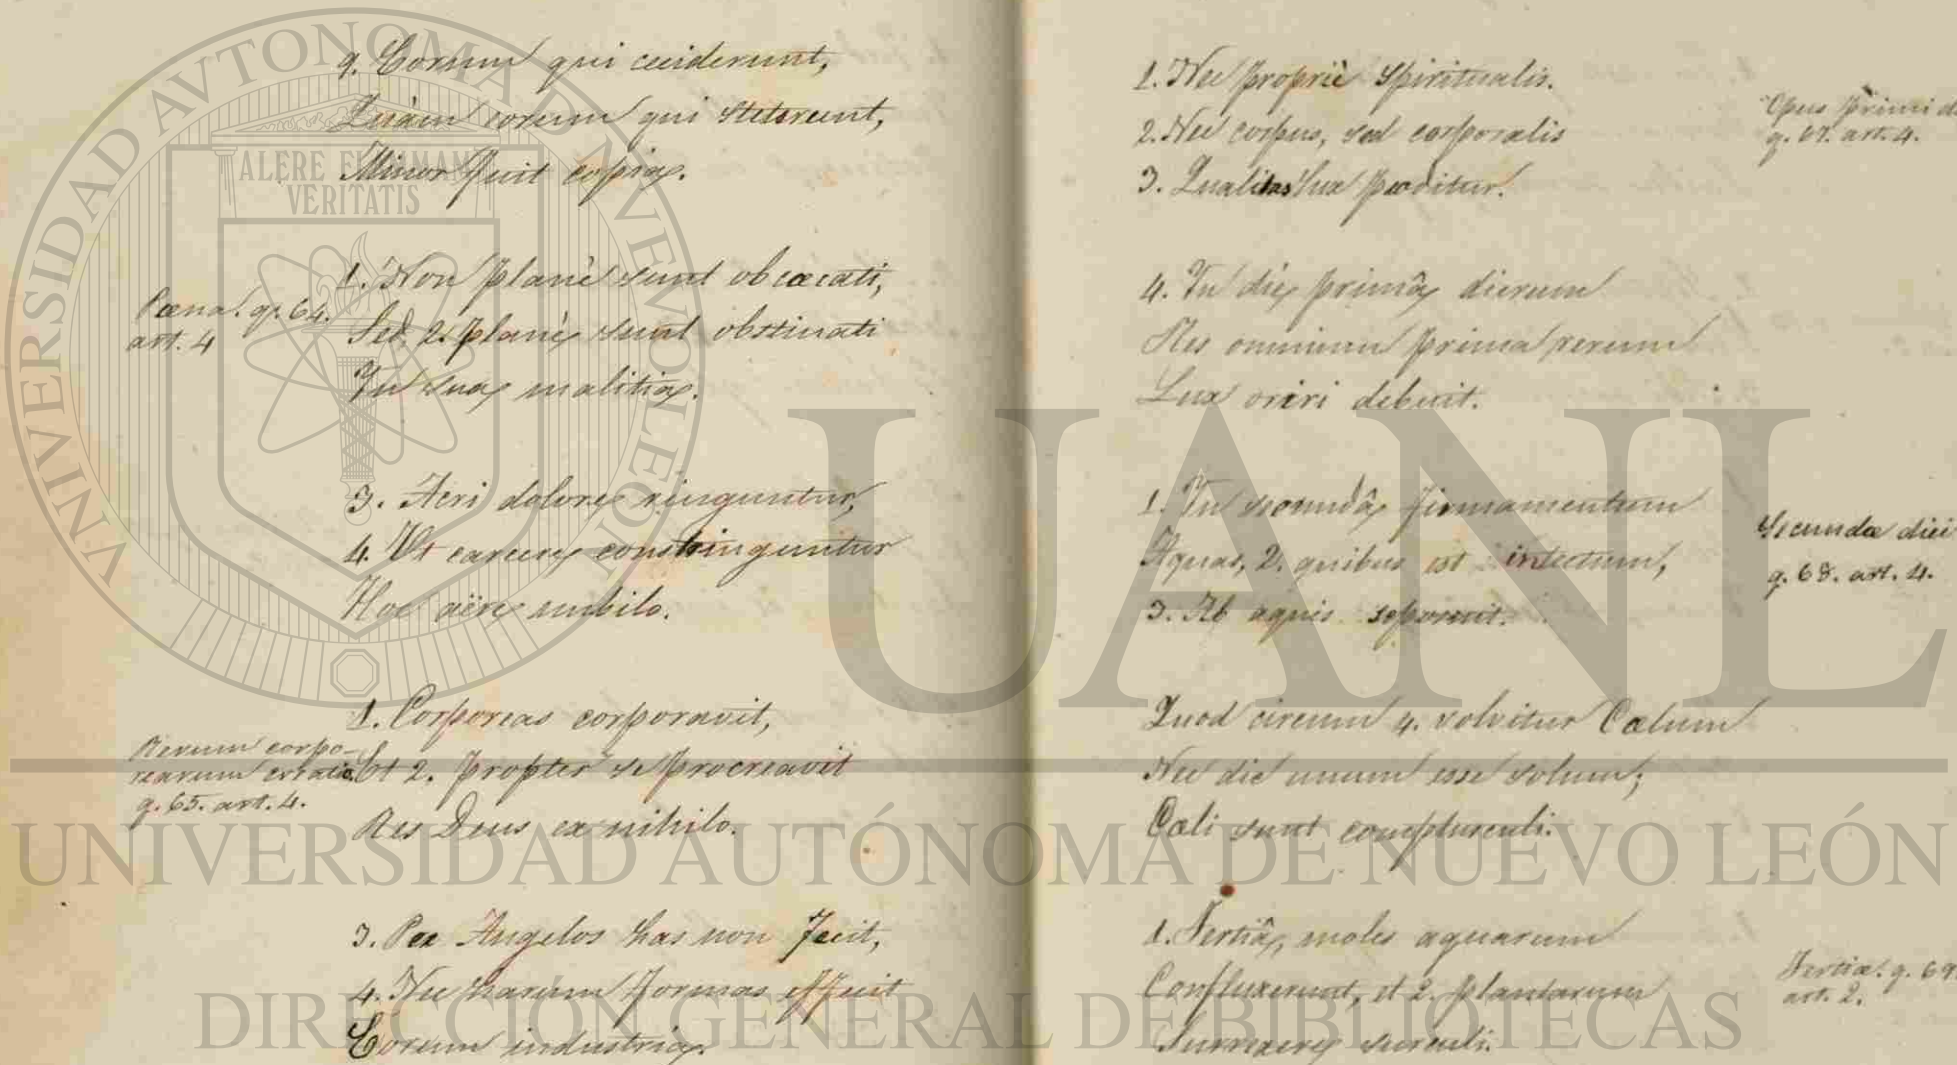 9. Eorum qui ceciderunt,
Quàm eorum qui steterunt,
Minor fuit copia.
Pœna. q. 64.
art. 4
1. Non planè sunt obcæcati,
Sed, 2. planè sunt obstinati
In sua malitia.
3. Acri dolore ringuntur,
4. Ut carcere constringuntur
Hoc aëre nubilo.
Rerum corpo-
rearum creatio.
q. 65. art. 4.
1. Corporeas corporavit,
Et 2. propter se procreavit
Res Deus ex nihilo.
3. Per Angelos has non fecit,
4. Nec harum formas effecit
Eorum industria.
1. Nec propriè spiritualis.
2. Nec corpus, sed corporalis
3. Qualitas lux proditur.
Opus primi d.
q. 67. art. 4.
4. In die primâ dierum
Res omnium prima rerum
Lux oriri debuit.
1. In secundâ, firmamentum
Aquas, 2. quibus est intectum,
3. Ab aquis separavit.
Secundæ diei
q. 68. art. 4.
Quod circum 4. volvitur Cœlum
Nec dic unum esse solum;
Cœli sunt complusculi.
1. Tertiâ, moles aquarum
Confluxerunt, et 2. plantarum
Surrexere surculi.
Tertiæ. q. 69
art. 2.
UNIVERSIDAD AUTONOMA DE NUEVO LEON
ALERE FLAMMAM
VERITATIS
UANL
UNIVERSIDAD AUTÓNOMA DE NUEVO LEÓN
DIRECCIÓN GENERAL DE BIBLIOTECAS